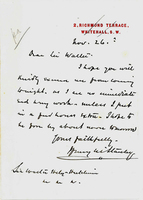 2, RICHMOND TERRACE,
WHITEHALL, S. W.
Nov. 26.
Dear Sir Walter
I hope you will
kindly excuse me from coming
tonight, as I am so
and have work unless I put
in a few hours extra. I hope to
be for by about noon tomorrow
Yours faithfully
Henry M Stanley
Sir Walter Hely-Hutchinson